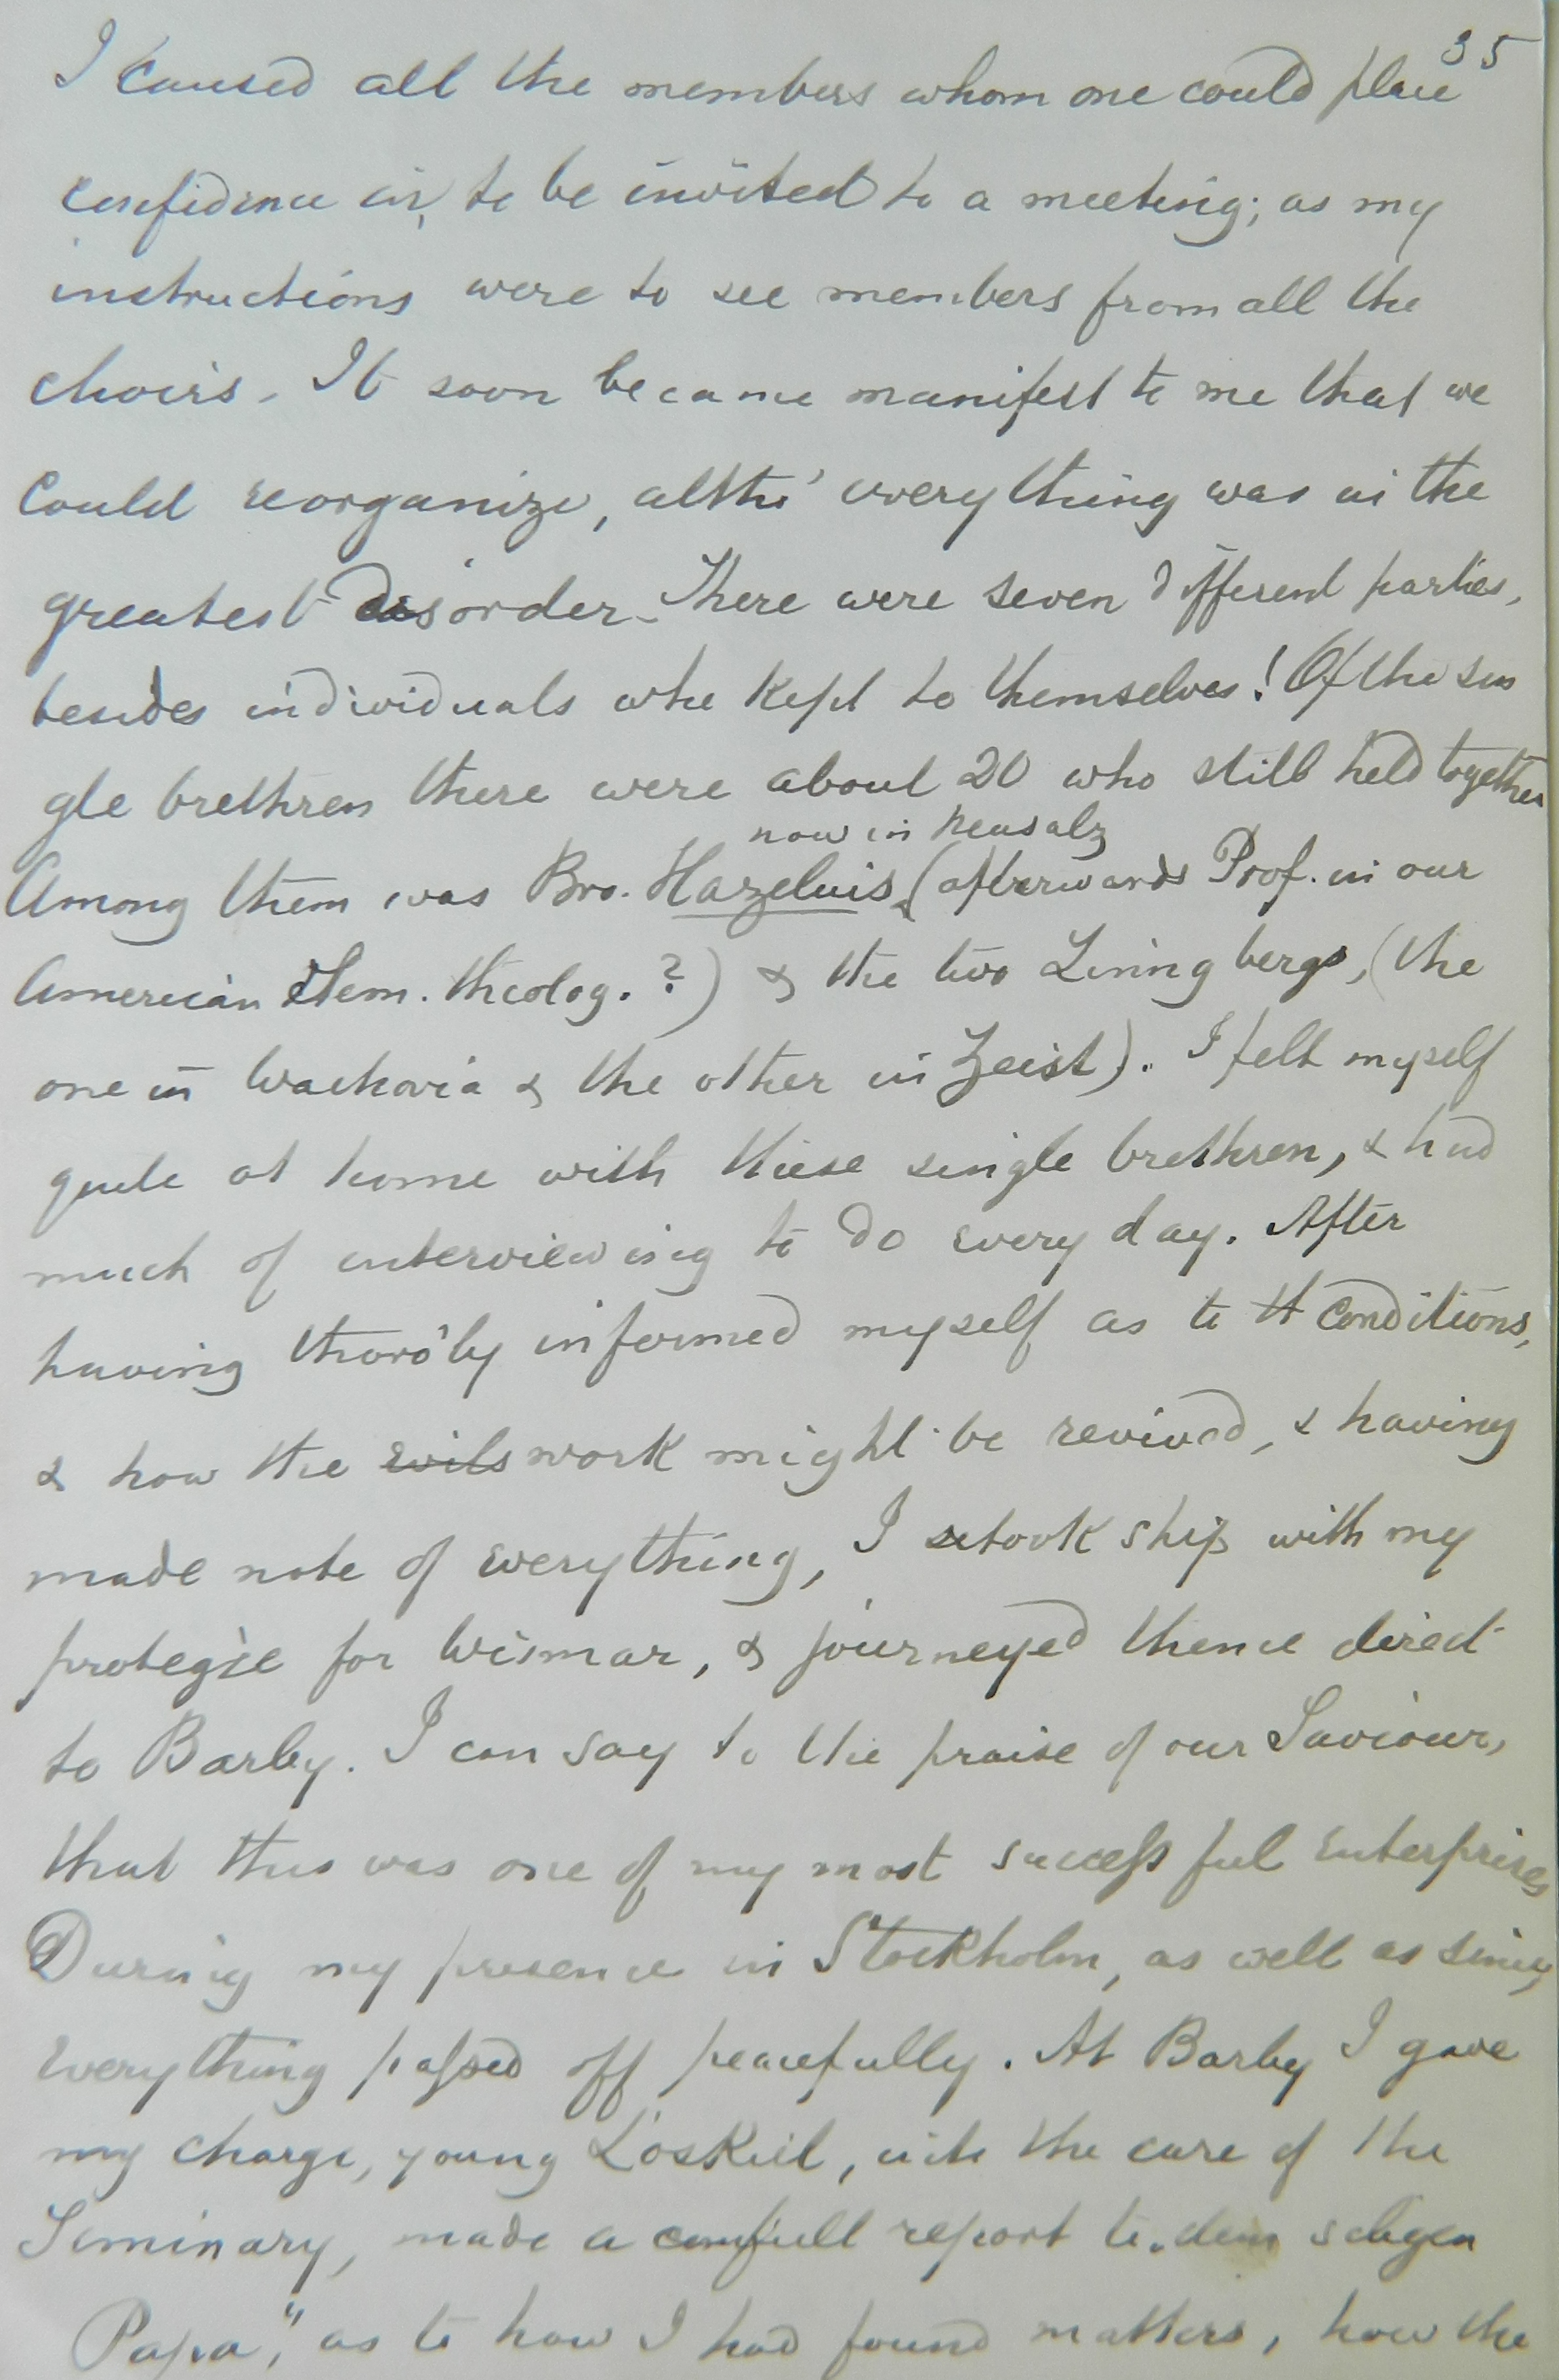 35
I caused all the members whom one could place
confidence in, to be invited to a meeting; as my
instructions were to see members from all the
choirs. It soon became manifest to me that we
could reorganize, altho' everything was in the
greatest disorder. There were seven different parties,
besides individuals who kept to themselves! Of the sin
gle brethren there were about 20 who still held together
now in Neusalz
Among them was Bro. Hazelius (afterwards Prof. in our
American Sem. theolog. ?) & the two Liningbergs, (the
one in Wachovia & the other in Zeist). I felt myself
quite at home with these single brethren, & had
much of interviewing to do every day. After
having thoro'ly informed myself as to tt conditions,
& how the evils work might be revived, & having
made note of everything, I took ship with my
protegée for Wismar, & journeyed thence direct
to Barby. I can say to the praise of our Saviour,
that this was one of my most successful enterprises
During my presence in Stockholm, as well as since,
everything passed off peacefully. At Barby I gave
my charge, young Loskiel, into the care of the
Seminary, made a full report to "dem seligen
Papa", as to how I had found matters, how the